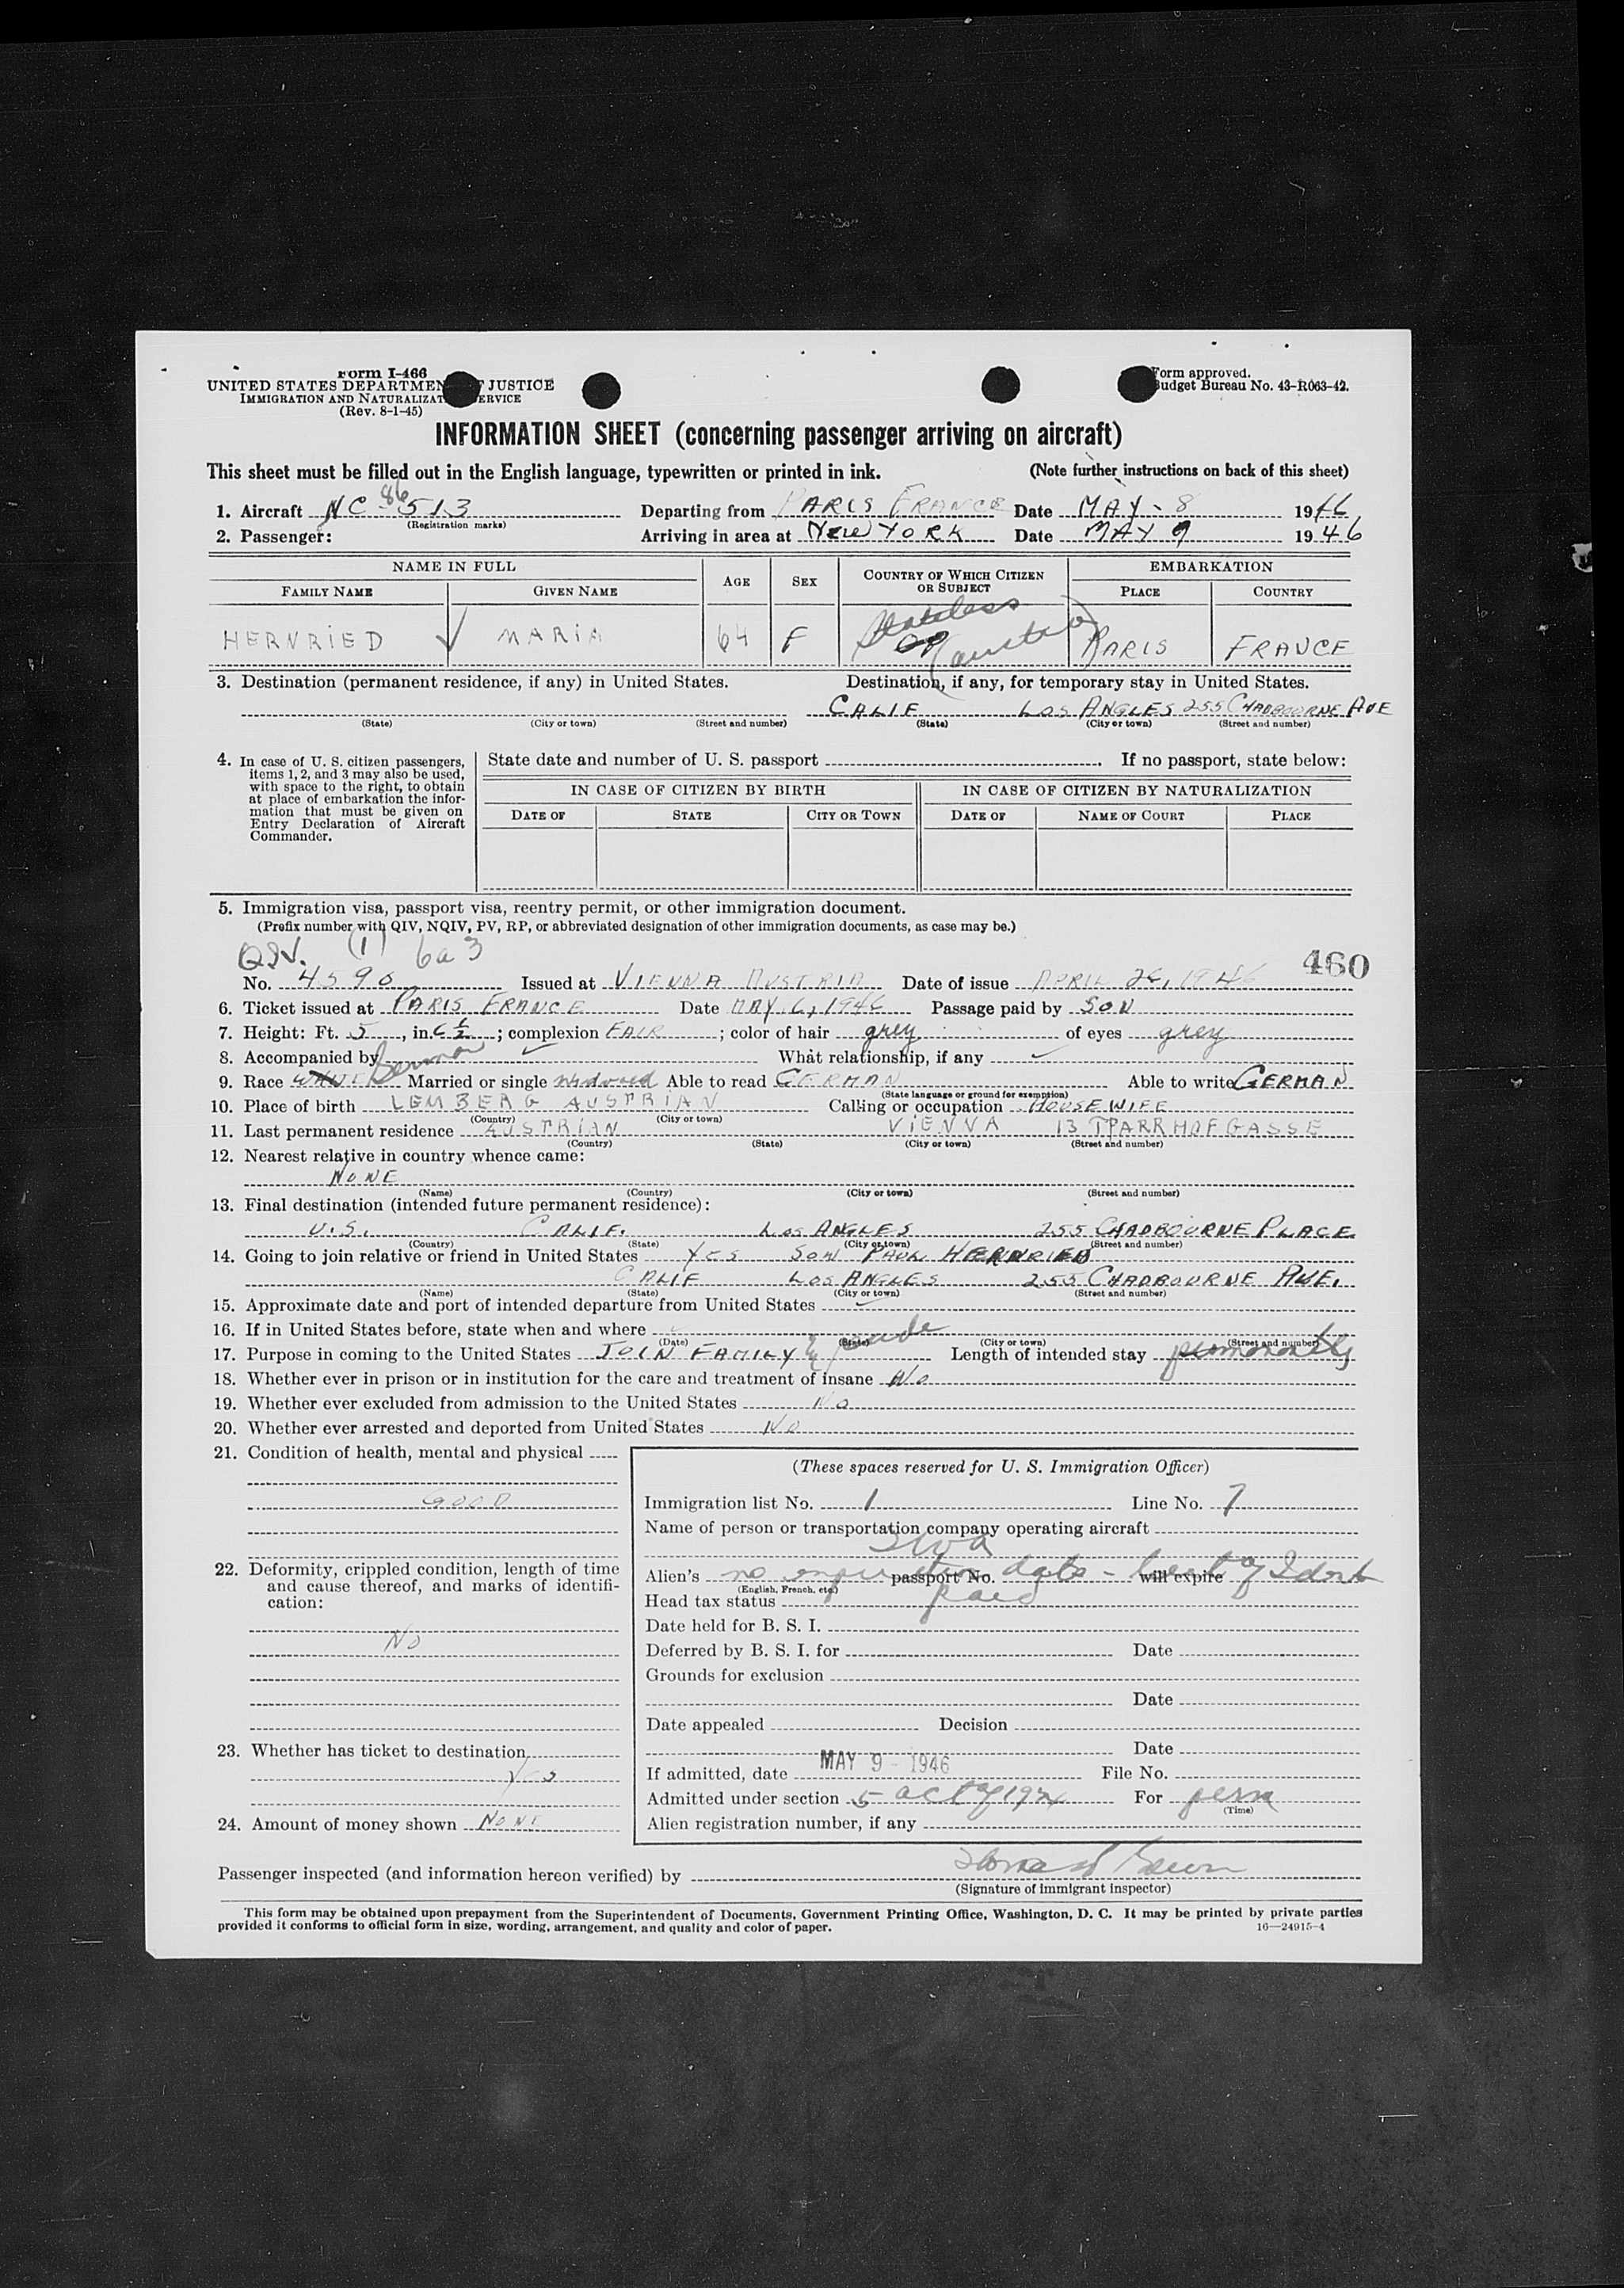 Form I-466
UNITED STATES DEPARTMEN F JUSTICE
IMMIGRATION AND NATURALIZAT ERVICE
(Rev. 8-1-45)
Form approved.
Budget Bureau No. 43-R063-42.
INFORMATION SHEET (concerning passenger arriving on aircraft)
This sheet must be filled out in the English language, typewritten or printed in ink. (Note further instructions on back of this sheet)
86
1. Aircraft NC 513 Departing from PARIS FRANCE Date MAY - 8 1946
(Registration marks)
2. Passenger: Arriving in area at NEW YORK Date MAY 9 1946
NAME IN FULL AGE SEX COUNTRY OF WHICH CITIZEN OR SUBJECT EMBARKATION
FAMILY NAME GIVEN NAME PLACE COUNTRY
Stateless
HERNRIED MARIA 64 F (Austria) PARIS FRANCE
3. Destination (permanent residence, if any) in United States. Destination, if any, for temporary stay in United States.
CALIF LOS ANGLES 255 CHADBOURNE AVE
(State) (City or town) (Street and number) (State) (City or town) (Street and number)
4. In case of U. S. citizen passengers, items 1, 2, and 3 may also be used, with space to the right, to obtain at place of embarkation the information that must be given on Entry Declaration of Aircraft Commander.
State date and number of U. S. passport If no passport, state below:
IN CASE OF CITIZEN BY BIRTH IN CASE OF CITIZEN BY NATURALIZATION
DATE OF STATE CITY OR TOWN DATE OF NAME OF COURT PLACE
5. Immigration visa, passport visa, reentry permit, or other immigration document.
(Prefix number with QIV, NQIV, PV, RP, or abbreviated designation of other immigration documents, as case may be.)
QIV. (1) 6a3 460
No. 4590 Issued at VIENNA AUSTRIA Date of issue APRIL 26, 1946
6. Ticket issued at PARIS, FRANCE Date MAY 6, 1946 Passage paid by SON
7. Height: Ft. 5, in. 6 1/2; complexion FAIR; color of hair grey of eyes grey
8. Accompanied by What relationship, if any
9. Race WHITE German Married or single widowed Able to read GERMAN Able to write GERMAN
(State language or ground for exemption)
10. Place of birth LEMBERG AUSTRIAN Calling or occupation HOUSEWIFE
(Country) (City or town)
11. Last permanent residence AUSTRIAN VIENNA 13 TPARRHOFGASSE
(Country) (State) (City or town) (Street and number)
12. Nearest relative in country whence came:
NONE
(Name) (Country) (City or town) (Street and number)
13. Final destination (intended future permanent residence):
U.S. CALIF. LOS ANGLES 255 CHADBOURNE PLACE
(Country) (State) (City or town) (Street and number)
14. Going to join relative or friend in United States YES SON PAUL HERNRIED
CALIF LOS ANGLES 255 CHADBOURNE AVE.
(Name) (State) (City or town) (Street and number)
15. Approximate date and port of intended departure from United States
16. If in United States before, state when and where
(Date) (State) (City or town) (Street and number)
17. Purpose in coming to the United States JOIN FAMILY & reside Length of intended stay permanently
18. Whether ever in prison or in institution for the care and treatment of insane No
19. Whether ever excluded from admission to the United States NO
20. Whether ever arrested and deported from United States NO
21. Condition of health, mental and physical
GOOD
22. Deformity, crippled condition, length of time and cause thereof, and marks of identification:
NO
23. Whether has ticket to destination
Yes
24. Amount of money shown NONE
(These spaces reserved for U. S. Immigration Officer)
Immigration list No. 1 Line No. 7
Name of person or transportation company operating aircraft
TWA
Alien's no expiration passport No. date - will expire of Ident
(English, French, etc.)
Head tax status paid
Date held for B. S. I.
Deferred by B. S. I. for Date
Grounds for exclusion
Date
Date appealed Decision
Date
If admitted, date MAY 9 - 1946 File No.
Admitted under section 5 act of 1924 For perm
(Time)
Alien registration number, if any
Passenger inspected (and information hereon verified) by
(Signature of immigrant inspector)
This form may be obtained upon prepayment from the Superintendent of Documents, Government Printing Office, Washington, D. C. It may be printed by private parties
provided it conforms to official form in size, wording, arrangement, and quality and color of paper. 16—24915-4